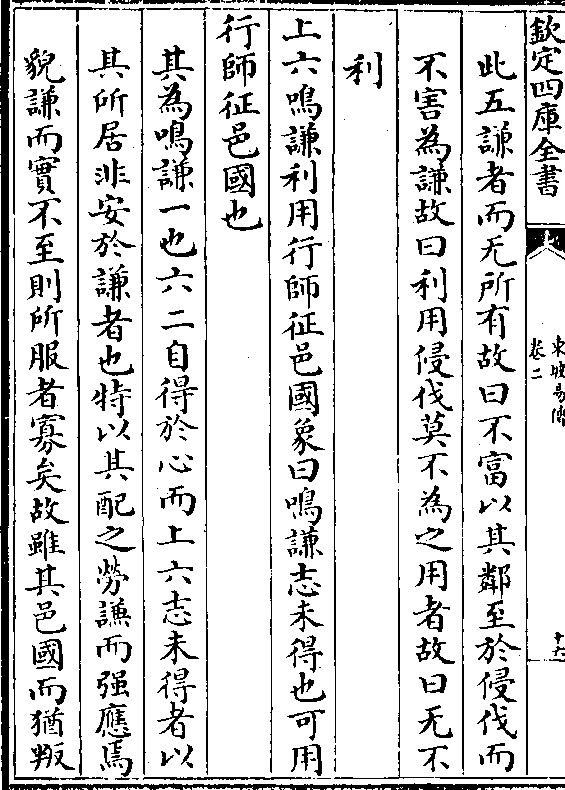 欽定四庫全書
東坡易傳
卷二
十六
此五謙者而无所有故曰不富以其鄰至於侵伐而
不害為謙故曰利用侵伐莫不為之用者故曰无不
利
上六鳴謙利用行師征邑國象曰鳴謙志未得也可用
行師征邑國也
其為鳴謙一也六二自得於心而上六志未得者以
其所居非安於謙者也特以其配之勞謙而强應焉
貌謙而實不至則所服者寡矣故雖其邑國而猶叛